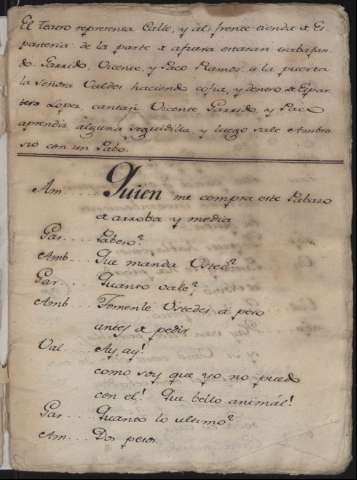 El Teatro representa Calle, y al frente tienda de Es-
parteria. de la parte de afuera estaran trabajan-
do Garrido, Vicente, y Paco Ramos. a la puerta
la Señora Valdes haciendo cofia, y dentro de Espar-
tera Lopa cantan Vicente Garrido, y Paco
aprendiz alguna seguidilla y luego sale Ambro-
sio con un Pabo.
Am... Quien me compra este Pabazo
de arroba y media
Gar... Pabero?
Amb... Que manda Usted?
Gar... Quanto vale?
Amb... Tomenle Ustedes a peso
antes de pedir.
Val... Ay, ay!
como soy que yo no puedo
con el! Que bello animal!
Gar... Quanto lo ultimo?
Am... Dos pesos.